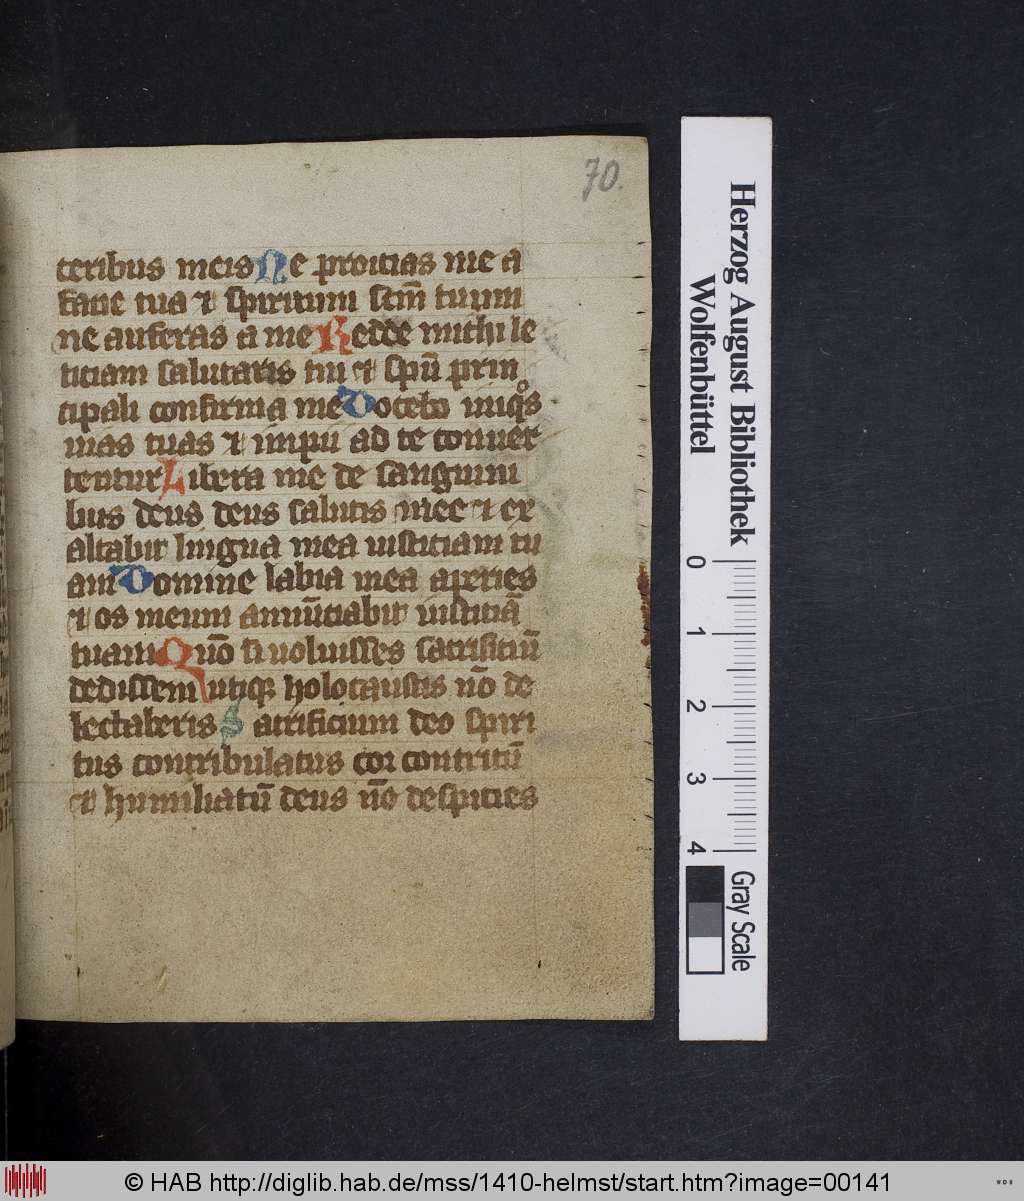 70.
teribus meis Ne proicias me a
facie tua et spiritum scm̄ tuum
ne auferas a me Redde michi le
ticiam salutaris tui et spū prin
cipali confirma me Docebo iniqos
uias tuas et impii ad te conuer
tentur Libera me de sanguini
bus deus deus salutis mee et ex
altabit lingua mea iusticiam tu
am Domine labia mea aperies
et os meum annūciabit iusticiā
tuam Quō si uoluisses sacrificiū
dedissem utiqꝫ holocaustis nō de
lectaberis Sacrificium deo spiri
tus contribulatus cor contritū
et humiliatū deus nō despicies
Herzog August Bibliothek
Wolfenbüttel
0 1 2 3 4
Gray Scale
© HAB http://diglib.hab.de/mss/1410-helmst/start.htm?image=00141